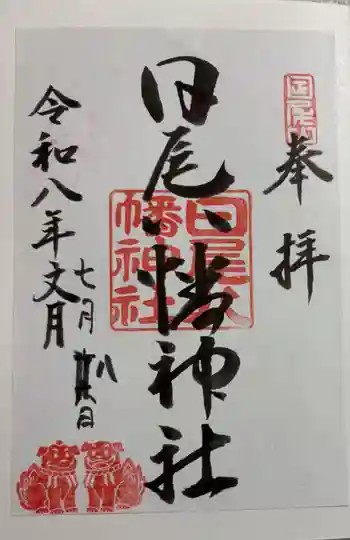 奉拝
日尾八幡神社
日尾八幡神社
令和八年文月
七月廿八日